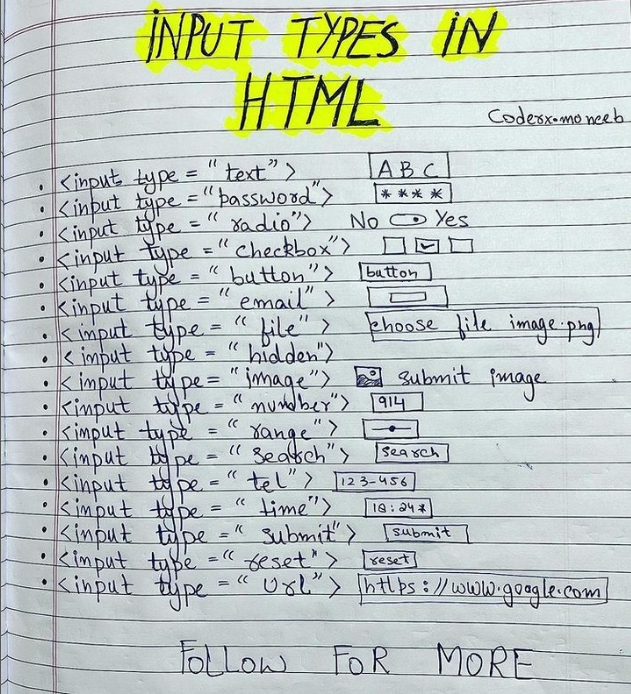 INPUT TYPES IN
HTML
Coderx.moneeb
• <input type = "text"> ABC
• <input type = "password"> ****
• <input type = "radio"> No Yes
• <input type = "checkbox">
• <input type = "button"> button
• <input type = "email">
• <input type = "file"> choose file image.png
• <input type = "hidden">
• <input type = "image"> submit image
• <input type = "number"> 914
• <input type = "range">
• <input type = "search"> search
• <input type = "tel"> 123-456
• <input type = "time"> 18:24*
• <input type = "submit"> submit
• <input type = "reset"> reset
• <input type = "Url"> https://www.google.com
FOLLOW FOR MORE